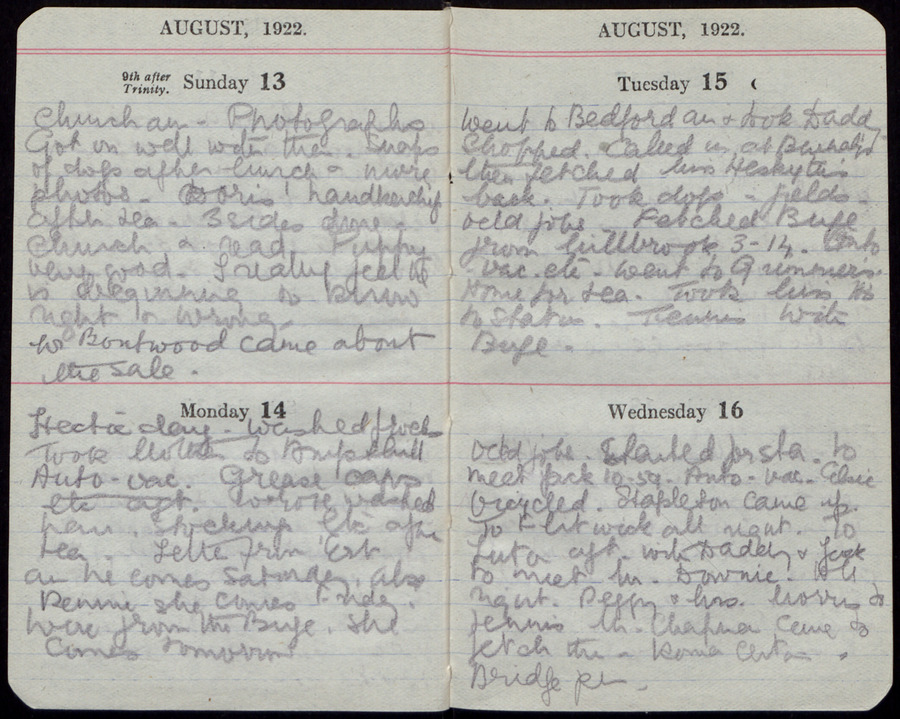 AUGUST, 1922.
9th after Trinity. Sunday 13
Church am - Photographs
Got on well with them. Snaps
of dogs after lunch & more
photos - Doris' handkerchief
after tea - 3 sides done -
Church & read. Puppy
very good. I really feel it
is beginning to know
right & wrong -
Bontwood came about
the sale.
Monday 14
Hectic day - washed frocks
Took Mother to Ampthill
Auto-vac. Grease caps
etc aft. Wrote washed
hair. Shocking etc after
tea - Letter from
he comes Saturday, also
she comes Friday.
Wire from the Buge. She
comes tomorrow
AUGUST, 1922.
Tuesday 15
Went to Bedford am & took Daddy
Shopped. Called in at
then fetched
back. Took dogs - fields -
odd jobs - Fetched Buge
from Millbrook 3-14.
vac. etc. Went to Grimmers.
Home for tea. Took
to Station. Tennis with
Buge -
Wednesday 16
Odd jobs. Started for sta. to
meet Jack 10-59. Auto-vac. Elsie
bicycled. Stapleton came up.
all right. To
aft. with Daddy & Jack
to meet Mr. Downie.
night. Peggy & Mrs. Morris to
tennis Mr. Chapman came to
fetch them -
Bridge